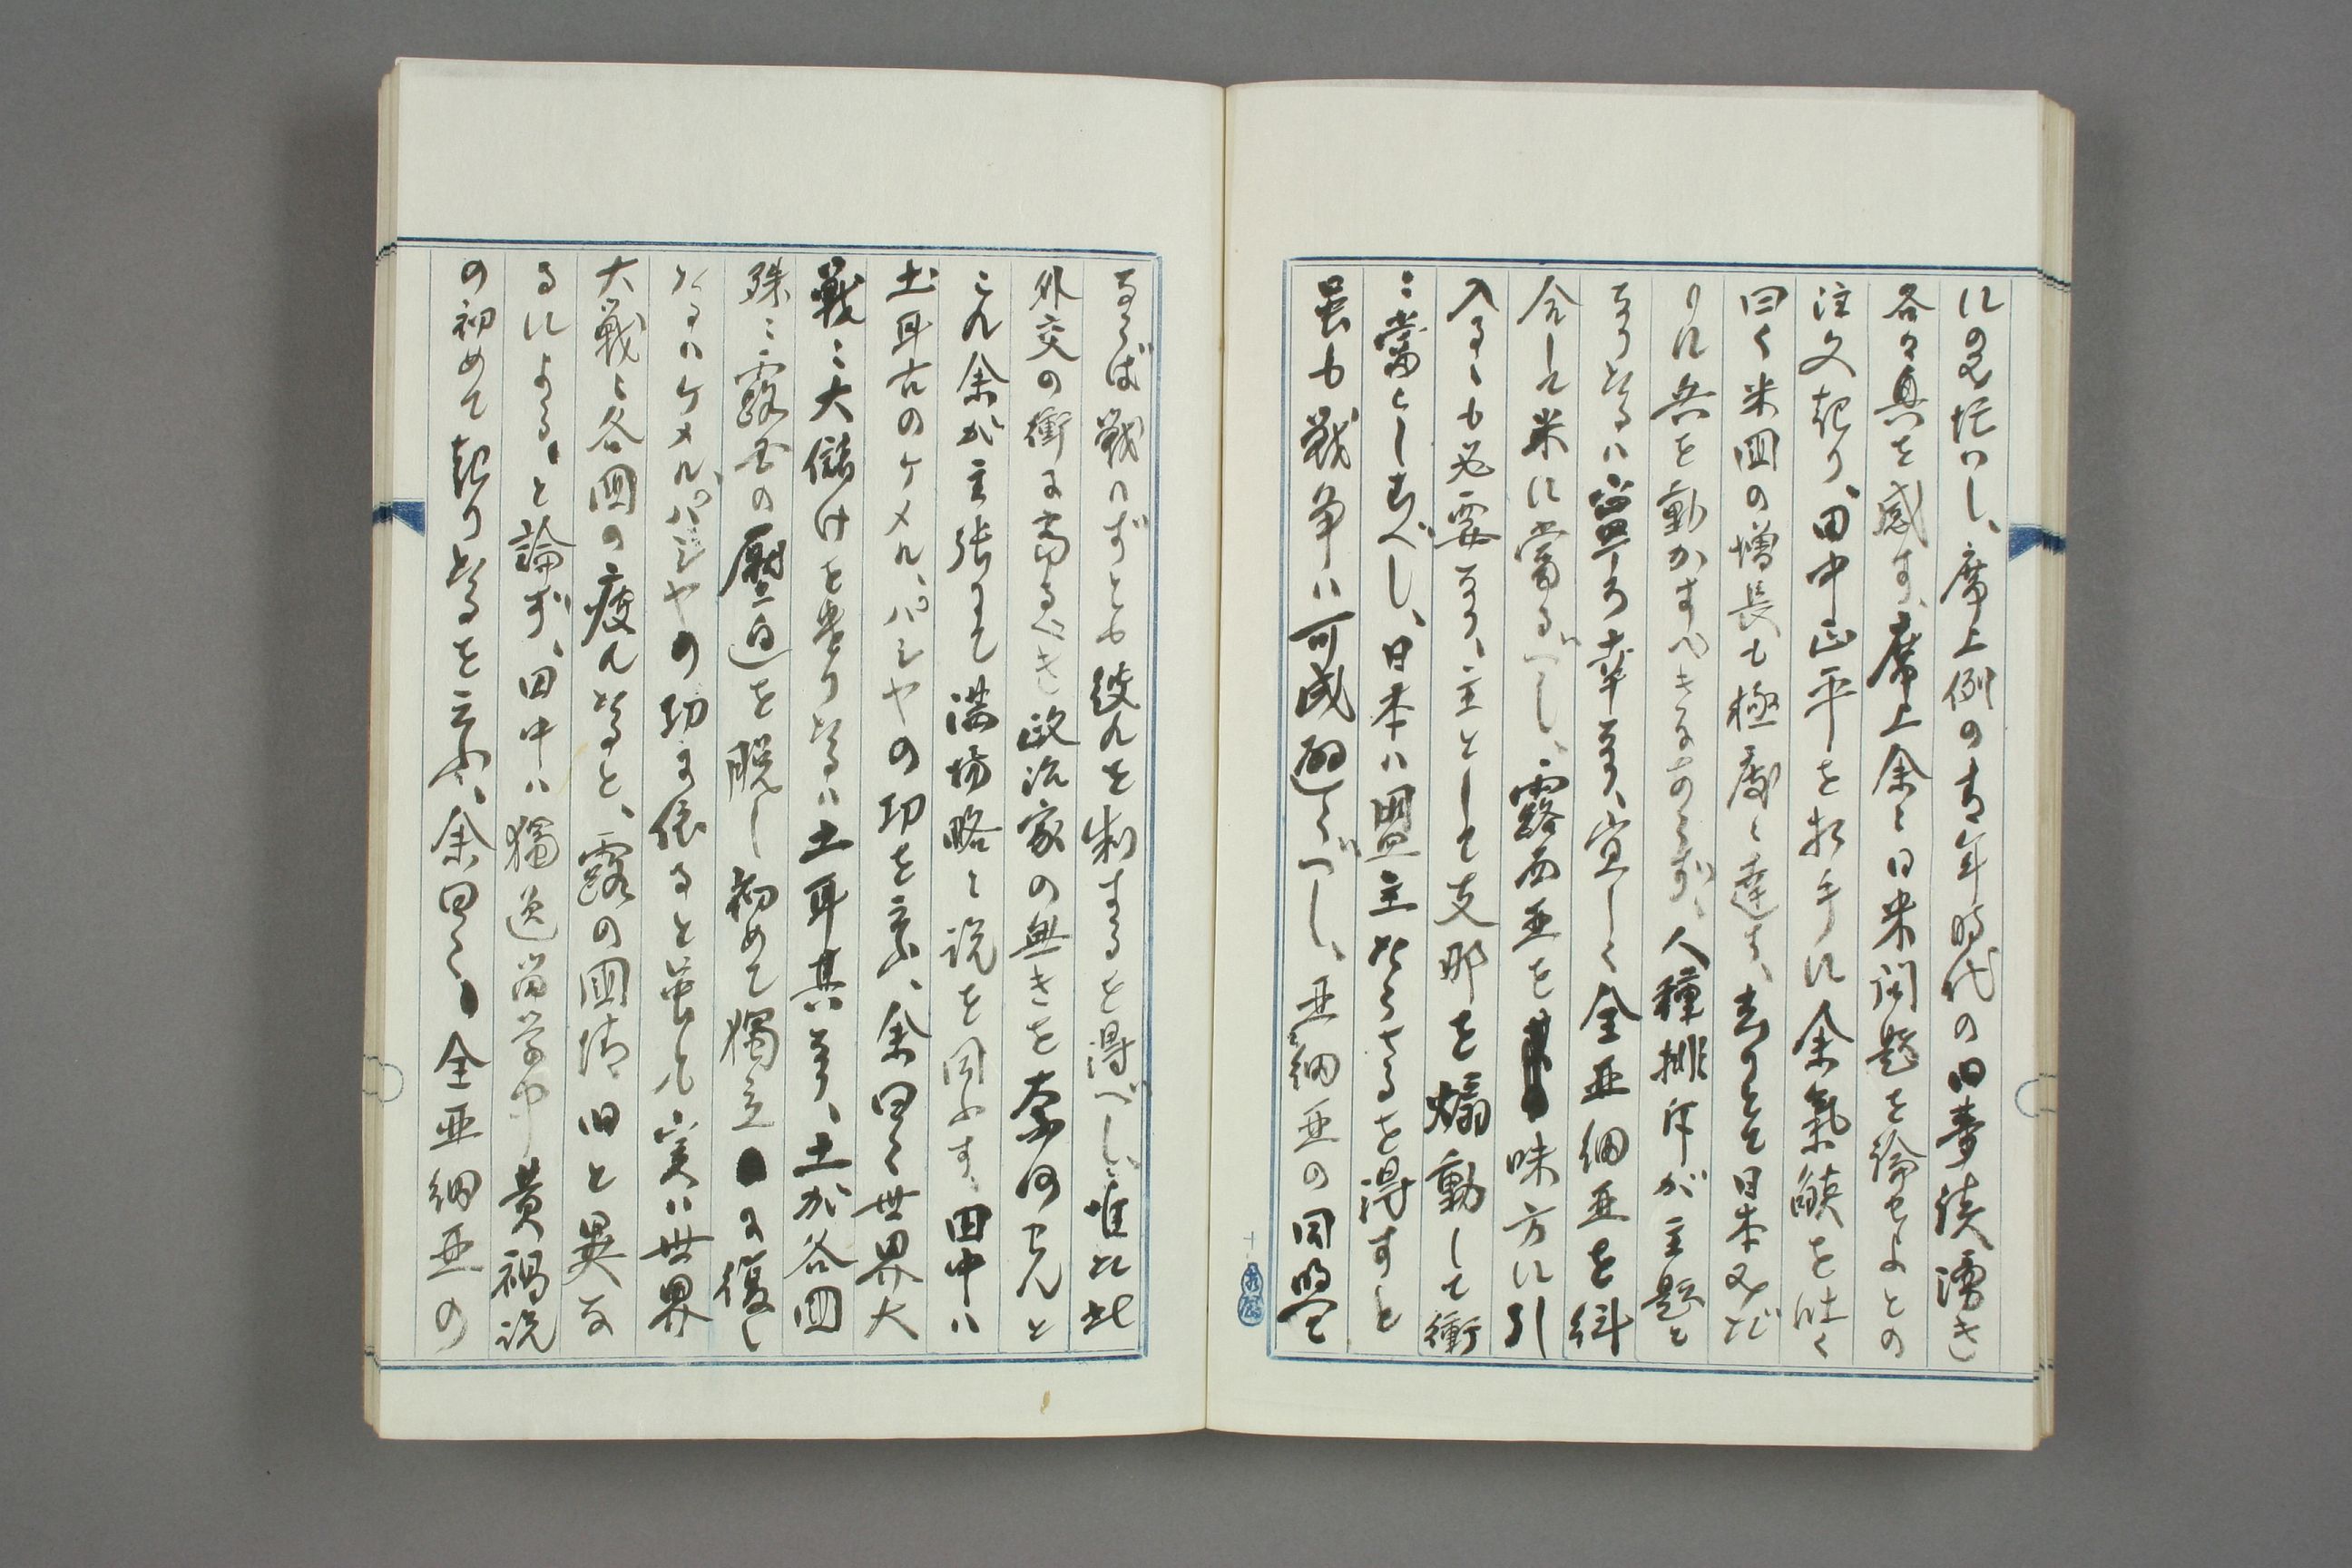 に口を揃し、席上例の青年時代の旧夢談湧き
各々興を感す、席上余に日米問題を論せよとの
注文起り、田中正平を相手に余氣焔を吐く
曰く米国の増長も極度に達す、去りとて日本又だ
りに兵を動かすべきにあらず、人種排斥が主題と
なりたるハ寧ろ幸なり、宜しく全亜細亜を糾
合して米に當るべし、露西亜を味方に引
入るゝも必要なり、主として支那を煽動して衝
に當らしむべし、日本ハ盟主たらさるを得すと
雖も戦争ハ可成避くべし、亜細亜の同盟
ならば戦はずとも彼れを制するを得べし、唯だ此
外交の衝に当るべき政治家の無きを奈何せんと
これ余が主張にて満場略々説を同ふす、田中ハ
土耳古のケメル、パシヤの功を云ふ、余曰く世界大
戦に大儲けを為りたるハ土耳其なり、土が各国
殊に露国の壓迫を脱し初めて獨立に復し
たるハケメルパシヤの功に依ると雖も実ハ世界
大戦に各国の疲れたると、露の国情旧と異な
るによる、と論ず、田中ハ獨逸留学中黄禍説
の初めて起りたるを云ふ、余曰く、全亜細亜の